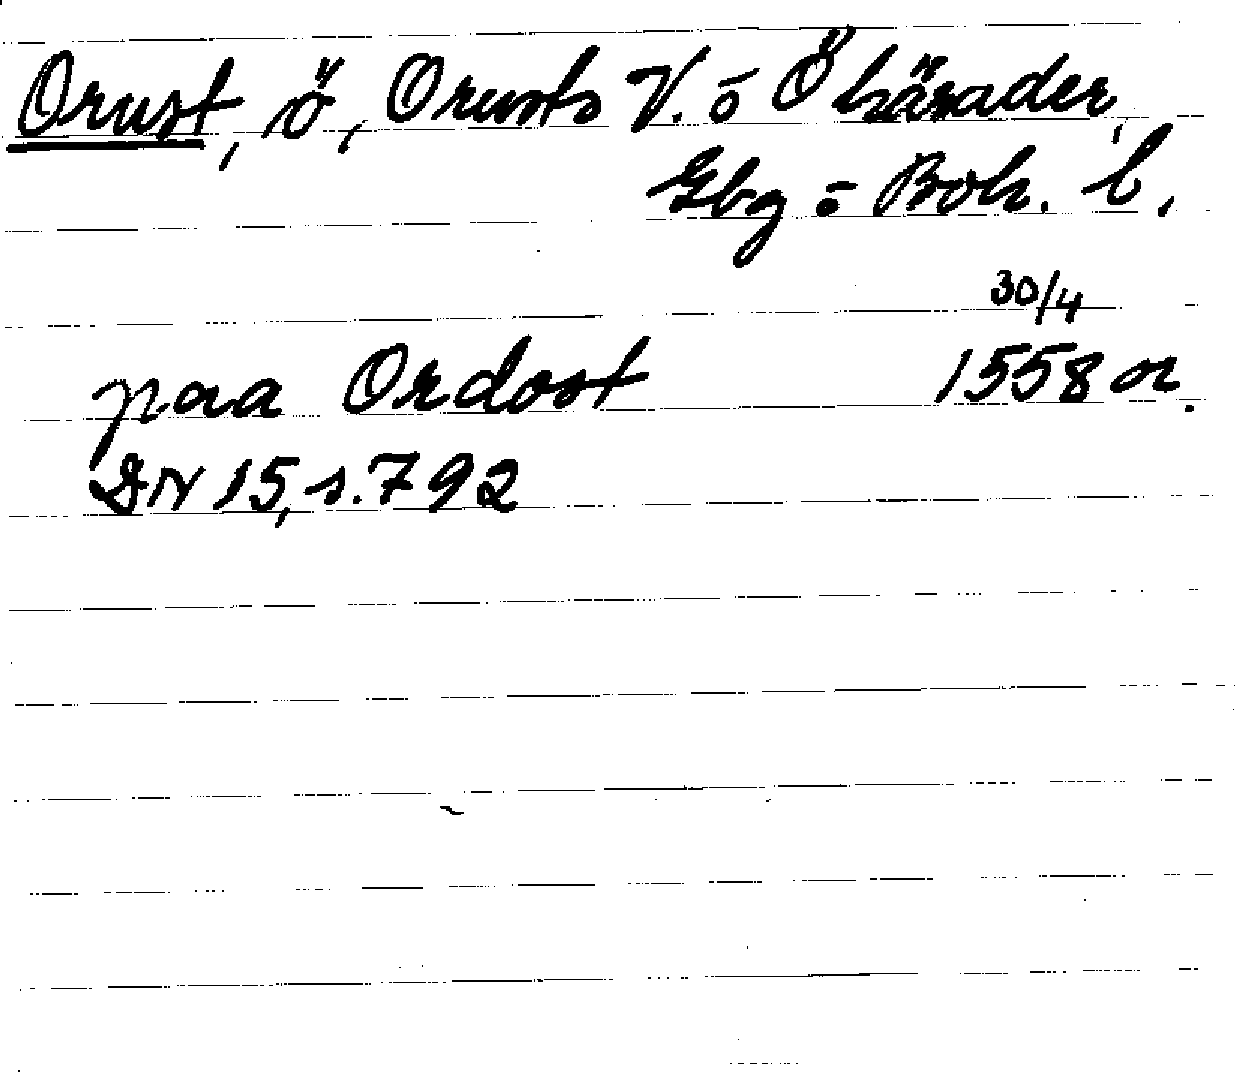 Orust, ö, Orusts V. o Ö härader,
Gbg o Boh. l.
30/4
paa Ordost 1558 or.
DN 15, s. 792